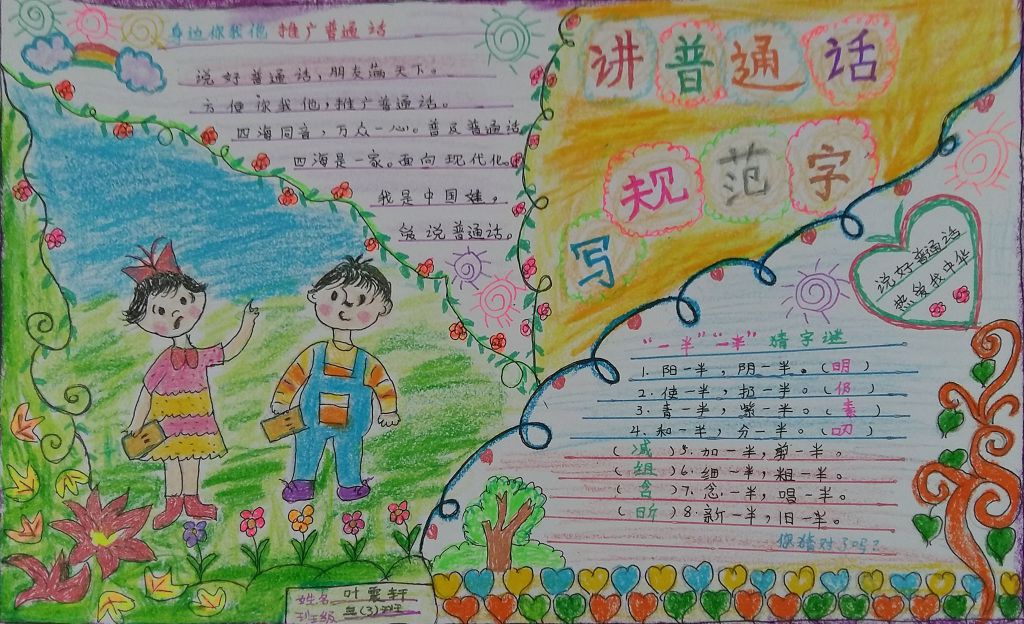 身边你我他 推广普通话
说好普通话，朋友满天下。
方便你我他，推广普通话。
四海同音，万众一心。普及普通话
四海是一家。面向现代化。
我是中国娃，
爱说普通话。
讲普通话
写规范字
说好普通话
热爱我中华
"一半""一半"猜字谜
1. 阳一半，阴一半。（明）
2. 使一半，扔一半。（仍）
3. 青一半，紫一半。（素）
4. 和一半，分一半。（叨）
（减）5. 加一半，剪一半。
（组）6. 细一半，粗一半。
（含）7. 念一半，唱一半。
（昕）8. 新一半，旧一半。
你猜对了吗？
姓名 叶 轩
班级 (3)班